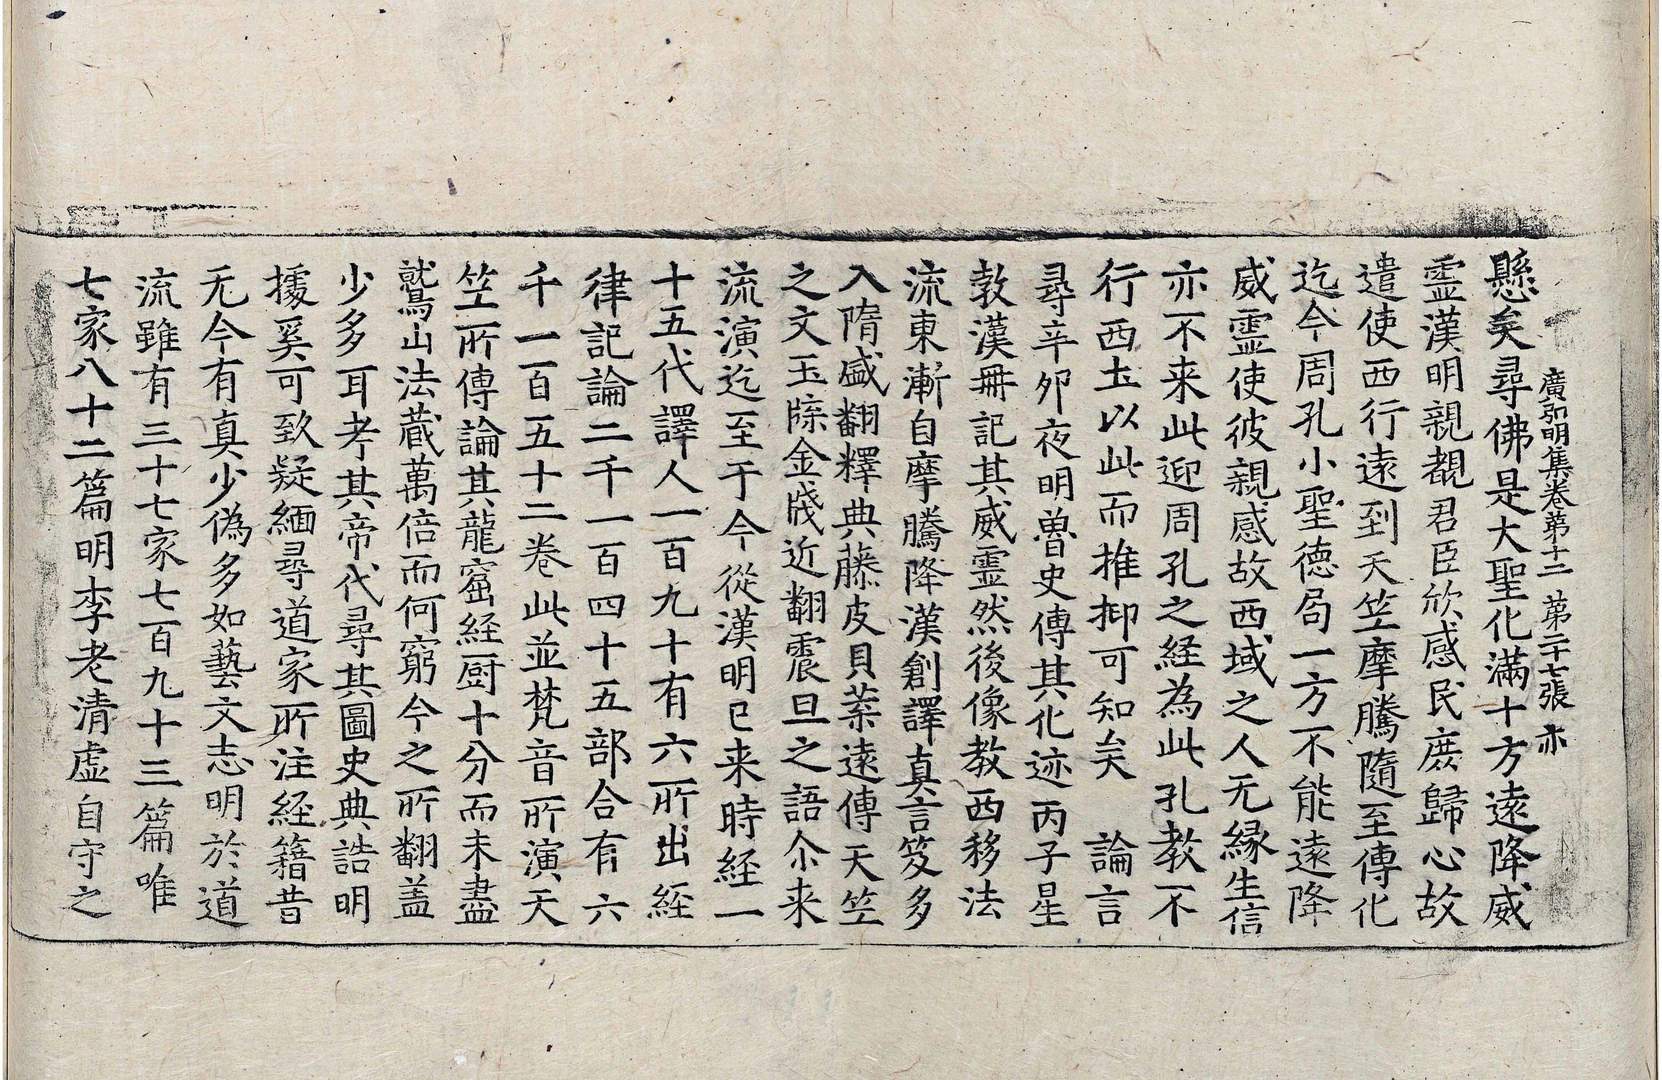 廣弘明集卷第十二　第二十七張　亦
懸矣尋佛是大聖化滿十方遠降威
靈漢明親覩君臣欣感民庶歸心故
遣使西行遠到天竺摩騰隨至傳化
迄今周孔小聖德局一方不能遠降
威靈使彼親感故西域之人无緣生信
亦不来此迎周孔之経為此孔教不
行西土以此而推抑可知矣　論言
尋辛夘夜明魯史傳其化迹丙子星
教漢冊記其威靈然後像教西移法
流東漸自摩騰降漢創譯真言笈多
入隋盛翻釋典藤皮貝葉遠傳天竺
之文玉牒金牋近翻震旦之語尒来
流演迄至于今從漢明已来時経一
十五代譯人一百九十有六所出経
律記論二千一百四十五部合有六
千一百五十二卷此並梵音所演天
竺所傳論其龍窟経厨十分而未盡
鷲山法藏萬倍而何窮今之所翻盖
少多耳考其帝代尋其圖史典誥明
據奚可致疑緬尋道家所注経籍昔
无今有真少偽多如藝文志明於道
流雖有三十七家七百九十三篇唯
七家八十二篇明李老清虛自守之